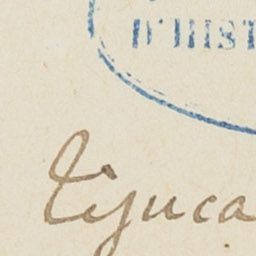 D'HIST
Tijuca